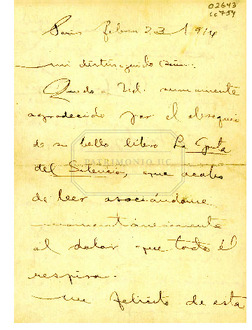 02643
cc754
Paris febrero 23 1914
mi distinguido Señor:
Quedo a Ud. sumamente
agradecido por el obsequio
de su bello libro La Gruta
del Silencio, que acabo
de leer asociándome
al dolor que todo él
respira.
me felicito de esta
PATRIMONIO UC